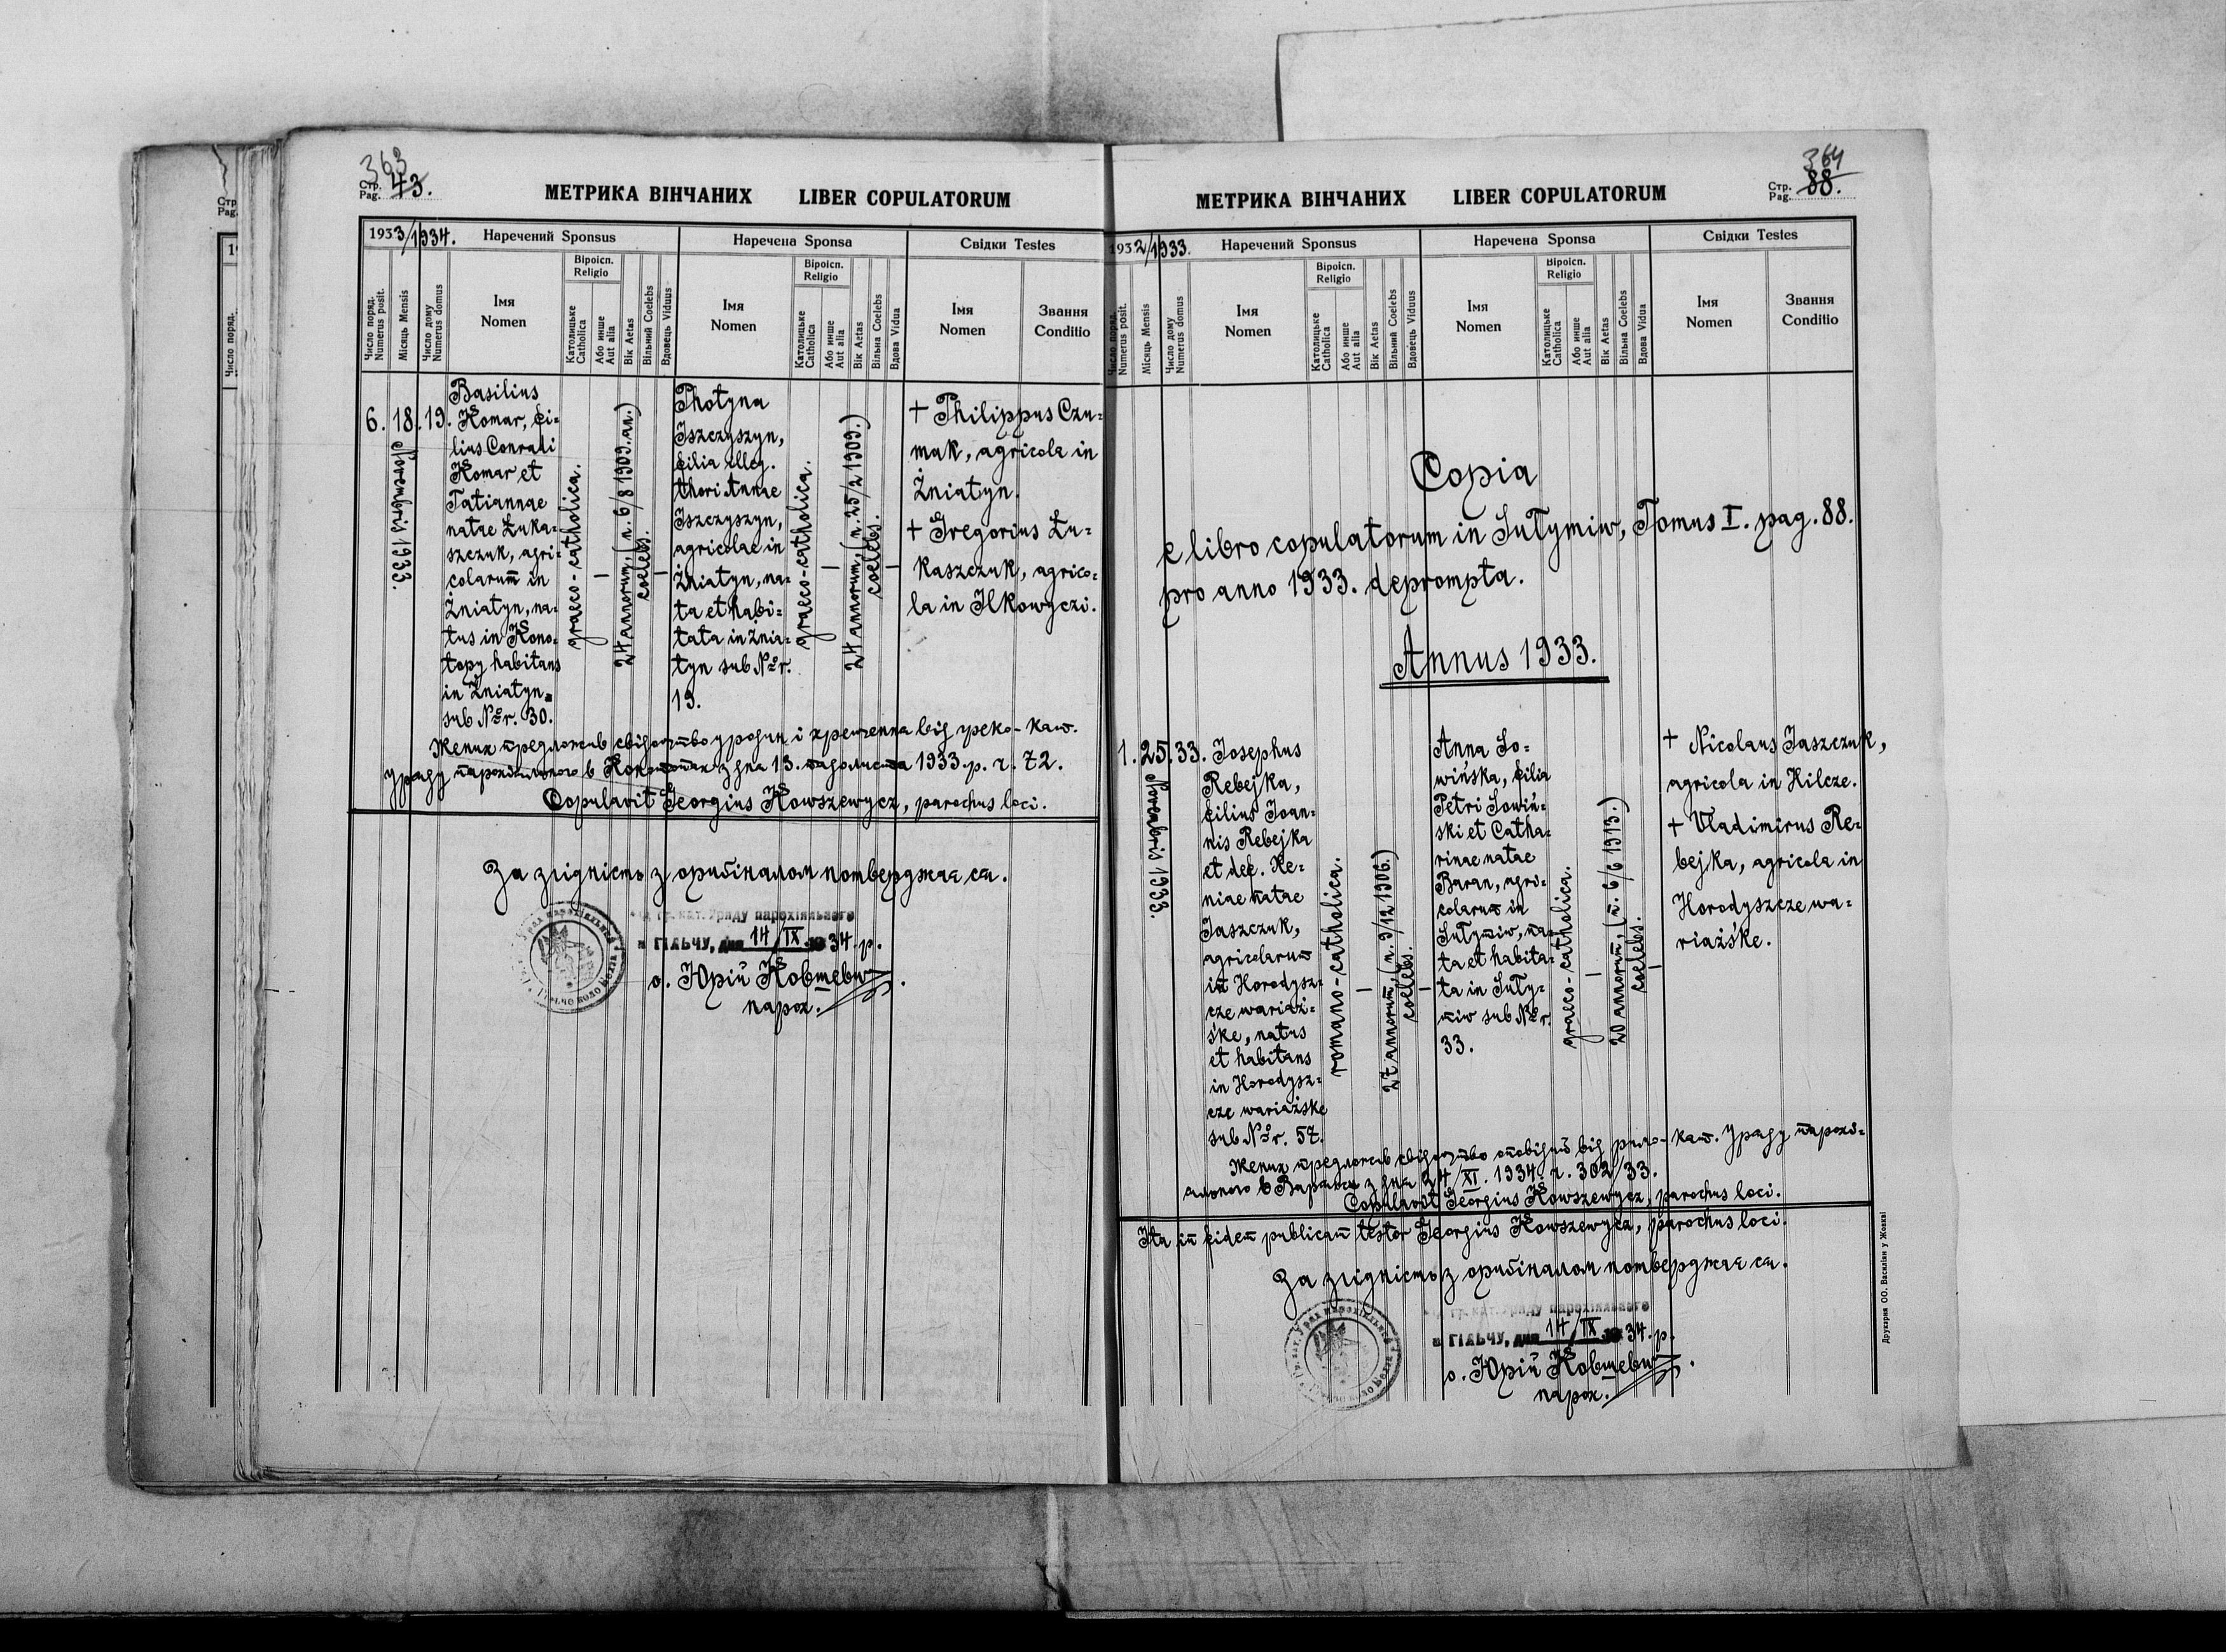 363
Стр. Pag. 43.
МЕТРИКА ВІНЧАНИХ LIBER COPULATORUM
1933/1934.
Наречений Sponsus
Наречена Sponsa
Свідки Testes
Число поряд. Numerus posit.
Місяць Mensis
Число дому Numerus domus
Імя Nomen
Віроісп. Religio
Католицьке Catholica
Або инше Aut alia
Вік Aetas
Вільний Coelebs
Вдовець Viduus
Імя Nomen
Віроісп. Religio
Католицьке Catholica
Або инше Aut alia
Вік Aetas
Вільна Coelebs
Вдова Vidua
Імя Nomen
Звання Conditio
6.
18.
Novembris 1933.
19.
Basilius
Komar, fi=
lius Conradi
Komar et
Tatiannae
natae Łuka=
szczuk, agri=
colarum in
Żniatyn, na=
tus in Kono=
topy habitans
in Żniatyn
sub Nr. 30.
graeco-catholica.
—
24 annorum, (n. 6/8 1909. an.)
coelebs.
—
Photyna
Iszczyszyn,
filia illeg.
thori Annae
Iszczyszyn,
agricolae in
Żniatyn, na=
ta et habi=
tata in Żnia=
tyn sub Nr.
19.
graeco-catholica.
—
24 annorum, (n. 25/2 1909.)
coelebs.
—
+ Philippus Czu=
mak, agricola in
Żniatyn.
+ Gregorius Łu=
kaszczuk, agrico=
la in Ilkowyczi.
Жених предложив свідоцтво уродин і хрещення від греко-кат.
уряду парохіяльного в Конотопах з дня 13. падолиста 1933. р. ч. 72.
Copulavit Georgius Kowszewycz, parochus loci.
За згідність з оригіналом потверджає ся.
Від гр. кат. Уряду парохіяльного
в ГІЛЬЧУ, дня 14/IX 1934. р.
о. Юрій Ковшевич
парох.
364
Стр. Pag. 88.
МЕТРИКА ВІНЧАНИХ LIBER COPULATORUM
1932/1933.
Наречений Sponsus
Наречена Sponsa
Свідки Testes
Число поряд. Numerus posit.
Місяць Mensis
Число дому Numerus domus
Імя Nomen
Віроісп. Religio
Католицьке Catholica
Або инше Aut alia
Вік Aetas
Вільний Coelebs
Вдовець Viduus
Імя Nomen
Віроісп. Religio
Католицьке Catholica
Або инше Aut alia
Вік Aetas
Вільна Coelebs
Вдова Vidua
Імя Nomen
Звання Conditio
Copia
e libro copulatorum in Sułymiw, Tomus I. pag. 88.
pro anno 1933. deprompta.
Annus 1933.
1.
25.
Novembris 1933.
33.
Iosephus
Rebejka,
filius Ioan=
nis Rebejka
et def. Xe=
niae natae
Jaszczuk,
agricolarum
in Horodysz=
cze wariaż=
śke, natus
et habitans
in Horodysz=
cze wariażske
sub Nr. 57.
romano-catholica.
—
27 annorum, (n. 9/12 1906.)
coelebs.
—
Anna So=
wińska, filia
Petri Sowiń=
ski et Catha=
rinae natae
Baran, agri=
colarum in
Sułymiw, na=
ta et habita=
ta in Suły=
miw sub Nr.
33.
graeco-catholica.
—
20 annorum, (n. 6/6 1913.)
coelebs.
—
+ Nicolaus Jaszczuk,
agricola in Hilcze.
+ Vladimirus Re=
bejka, agricola in
Horodyszcze wa=
riażśke.
Жених предложив свідоцтво оповідий від римо-кат. Уряду парохі=
яльного в Варяжи з дня 24/XI. 1934. ч. 302/33.
Copulavit Georgius Kowszewycz, parochus loci.
Ita in fidem publicam testor Georgius Kowszewycz, parochus loci.
За згідність з оригіналом потверджає ся.
Від гр. кат. Уряду парохіяльного
в ГІЛЬЧУ, дня 14/IX 1934. р.
о. Юрій Ковшевич
парох.
Друкарня ОО. Василіян у Жовкві